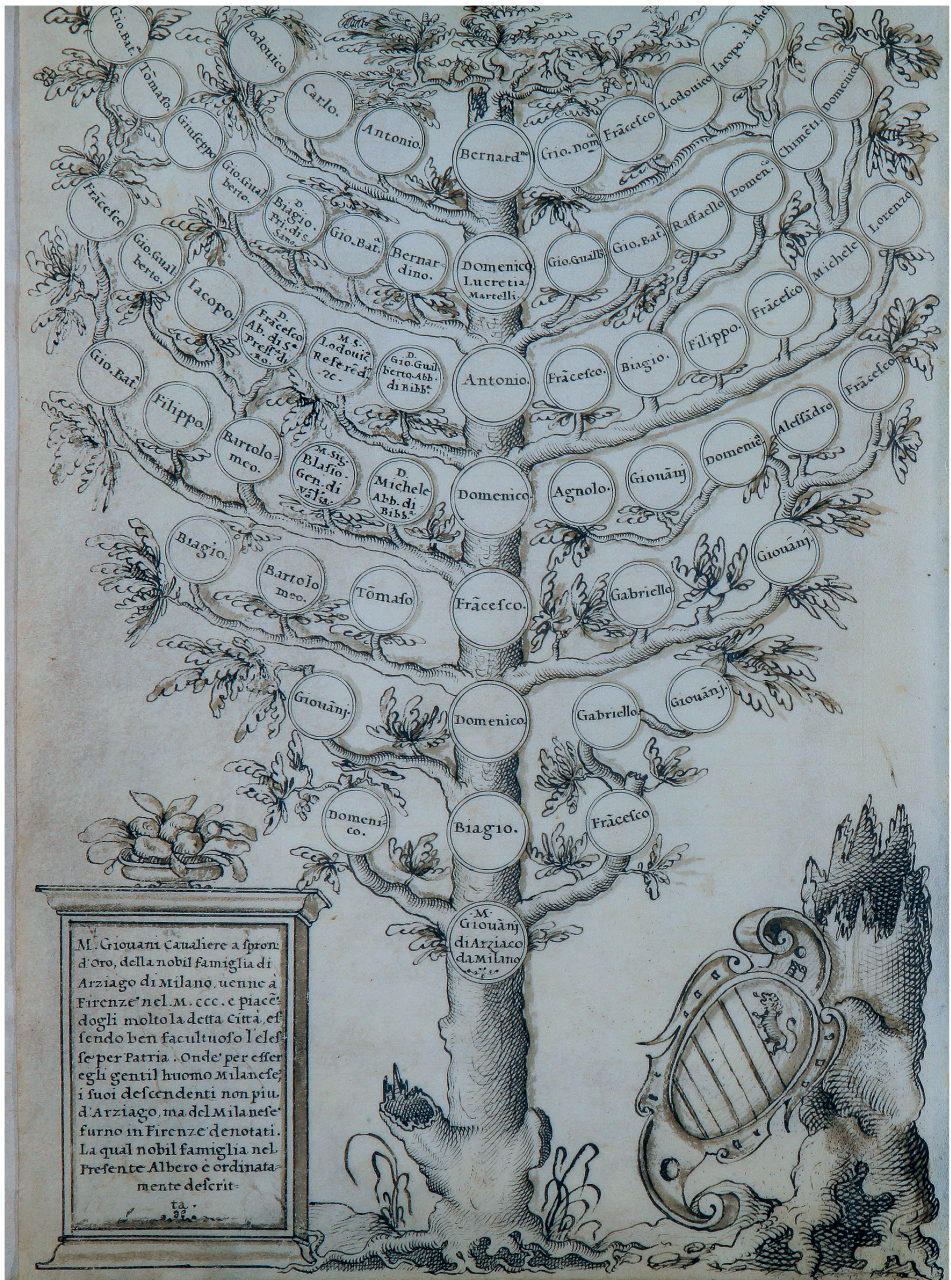 Gio.Bat.
Lodouico
Iacopo.
Michel
Tõmaso
Carlo.
Antonio.
Bernard.no
Gio.Dom.
Frãcesco
Lodouico
Domenico
Giuseppo
Chimẽti
Gio.Gual
berto.
D.
Biagio
Pri.di S.
Sano
Gio.Bat.
Bernar
dino.
Domenico
Lucretia
Martelli.
Gio.Gualb
Gio.Bat
Raffaello
Domen.co
Michele
Lorenzo
Frãcesco
Gio.Gual.
berto.
Iacopo.
D.
Frãcesco
Ab.di S.a
M.S.
Lodouic
Refered
D.
Gio.Gual
berto.Abb.
di Bibb.a
Antonio.
Frãcesco.
Biagio.
Filippo.
Frãcesco
Gio.Bat.
Filippo.
Bartolo-
meo.
M.Sig.
Blasio.
Gen.di
D.
Michele
Abb.di
Bibb.a
Domenico.
Agnolo.
Giouãnj
Domenic
Alessãdro
Frãcesco
Biagio.
Bartolo
meo.
Tõmaso
Frãcesco.
Gabriello
Giouãnj
Giouãnj.
Domenico.
Gabriello.
Giouãnj.
Domeni-
co.
Biagio.
Frãcesco
M.
Giouãnj
di Arziaco
da Milano
M. Giouãni Caualiere a spron
d'Oro, della nobil famiglia di
Arziago di Milano, uenne à
Firenze nel M. ccc. e piacẽ-
dogli molto la detta Città, es
sendo ben facultuoso l'eles
se per Patria. Onde per esser
egli gentil huomo Milanese,
i suoi descendenti non piu
d'Arziago, ma del Milanese
furno in Firenze denotati.
La qual nobil famiglia nel
Presente Albero è ordinata-
mente descrit-
ta.